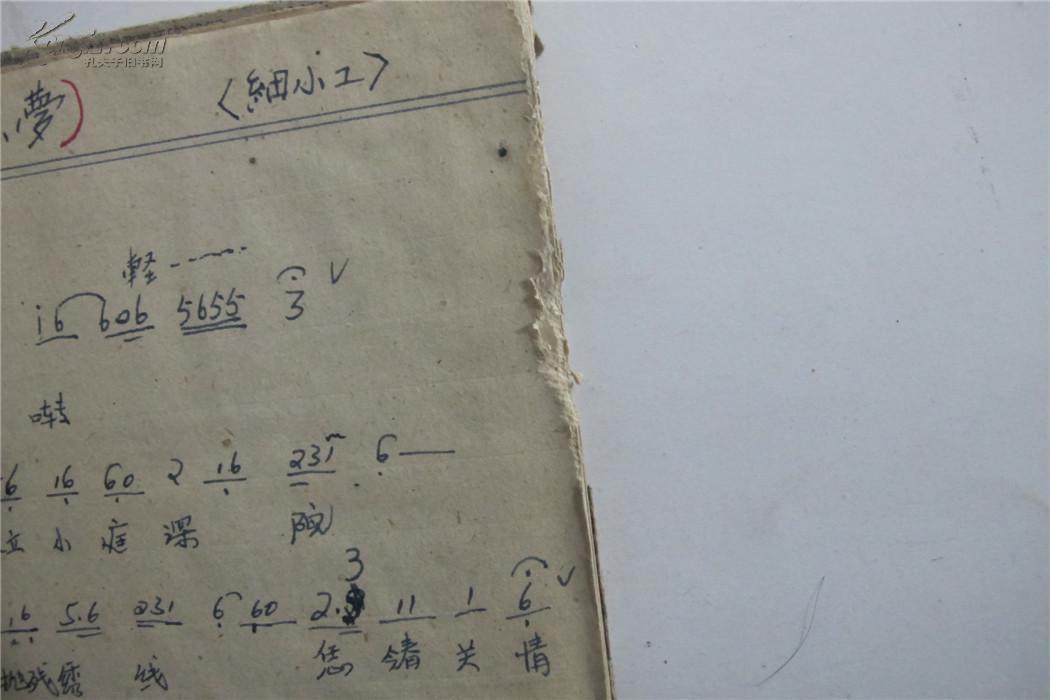 孔夫子旧书网
夢) 〈細小工〉
軽
i6 606 5655 3 V
啭
6 16 60 2 16 231 6 —
立 小 庭 深 院
3
16 5.6 231 6 60 2. 11 1 6 V
抛残 绣 线 恁 今春 关 情